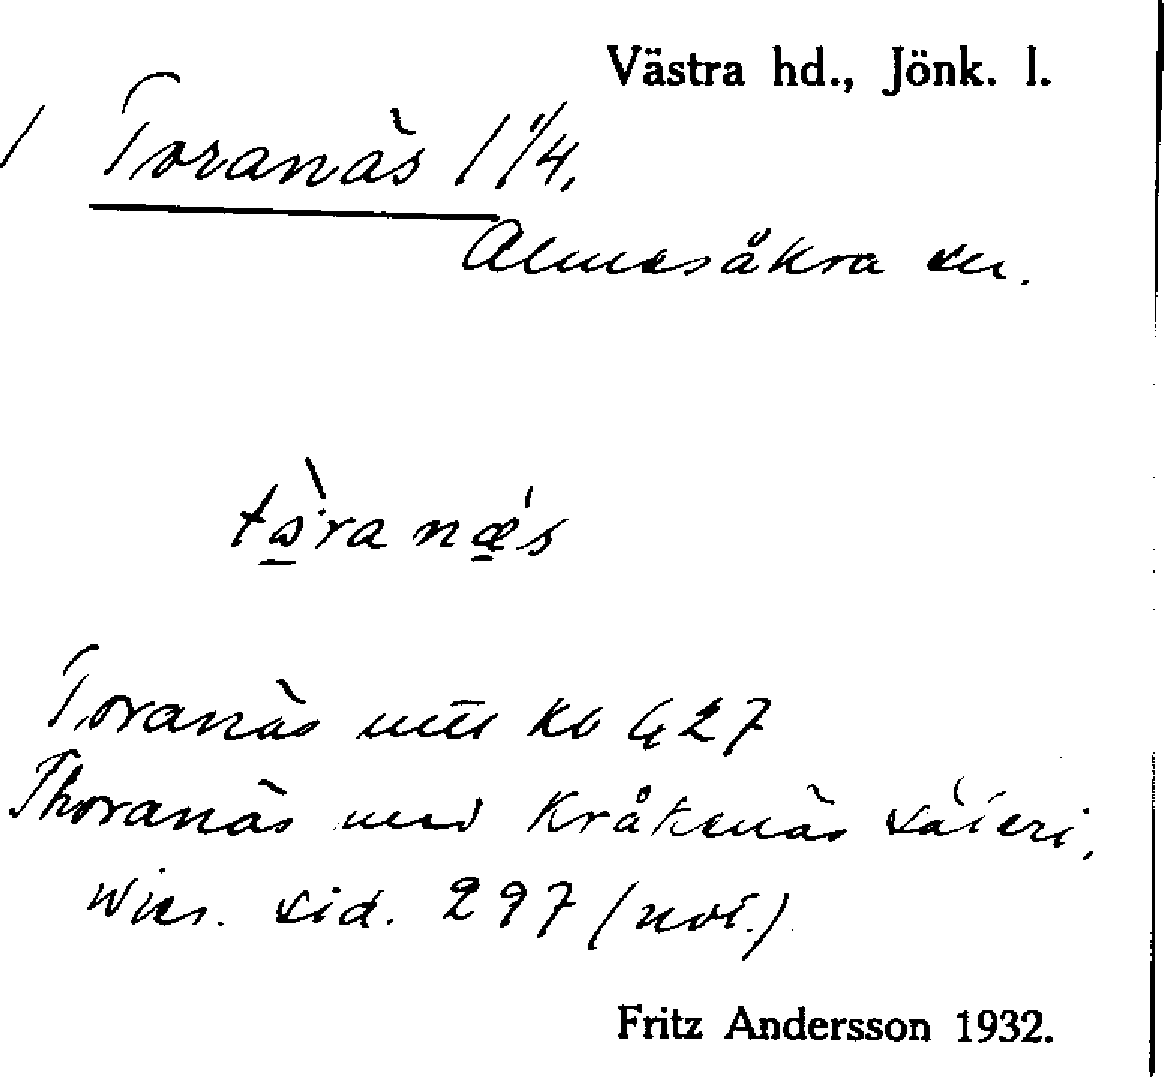 Västra hd., Jönk. l.
/ Toranäs 1 1/4,
Almesåkra sn.
tò̱ranæ̱´s
Toranäs mtl kb 427
Thoranäs med Kråkenäs säteri,
Wies. sid. 297 (not.)
Fritz Andersson 1932.